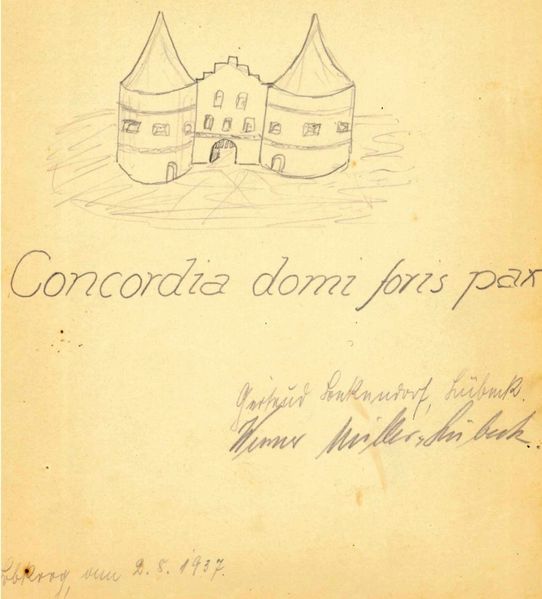 Concordia domi foris pax
Gertrud Lenkendorf, Lübeck.
Werner Müller, Lübeck.
am 2. 8. 1937.